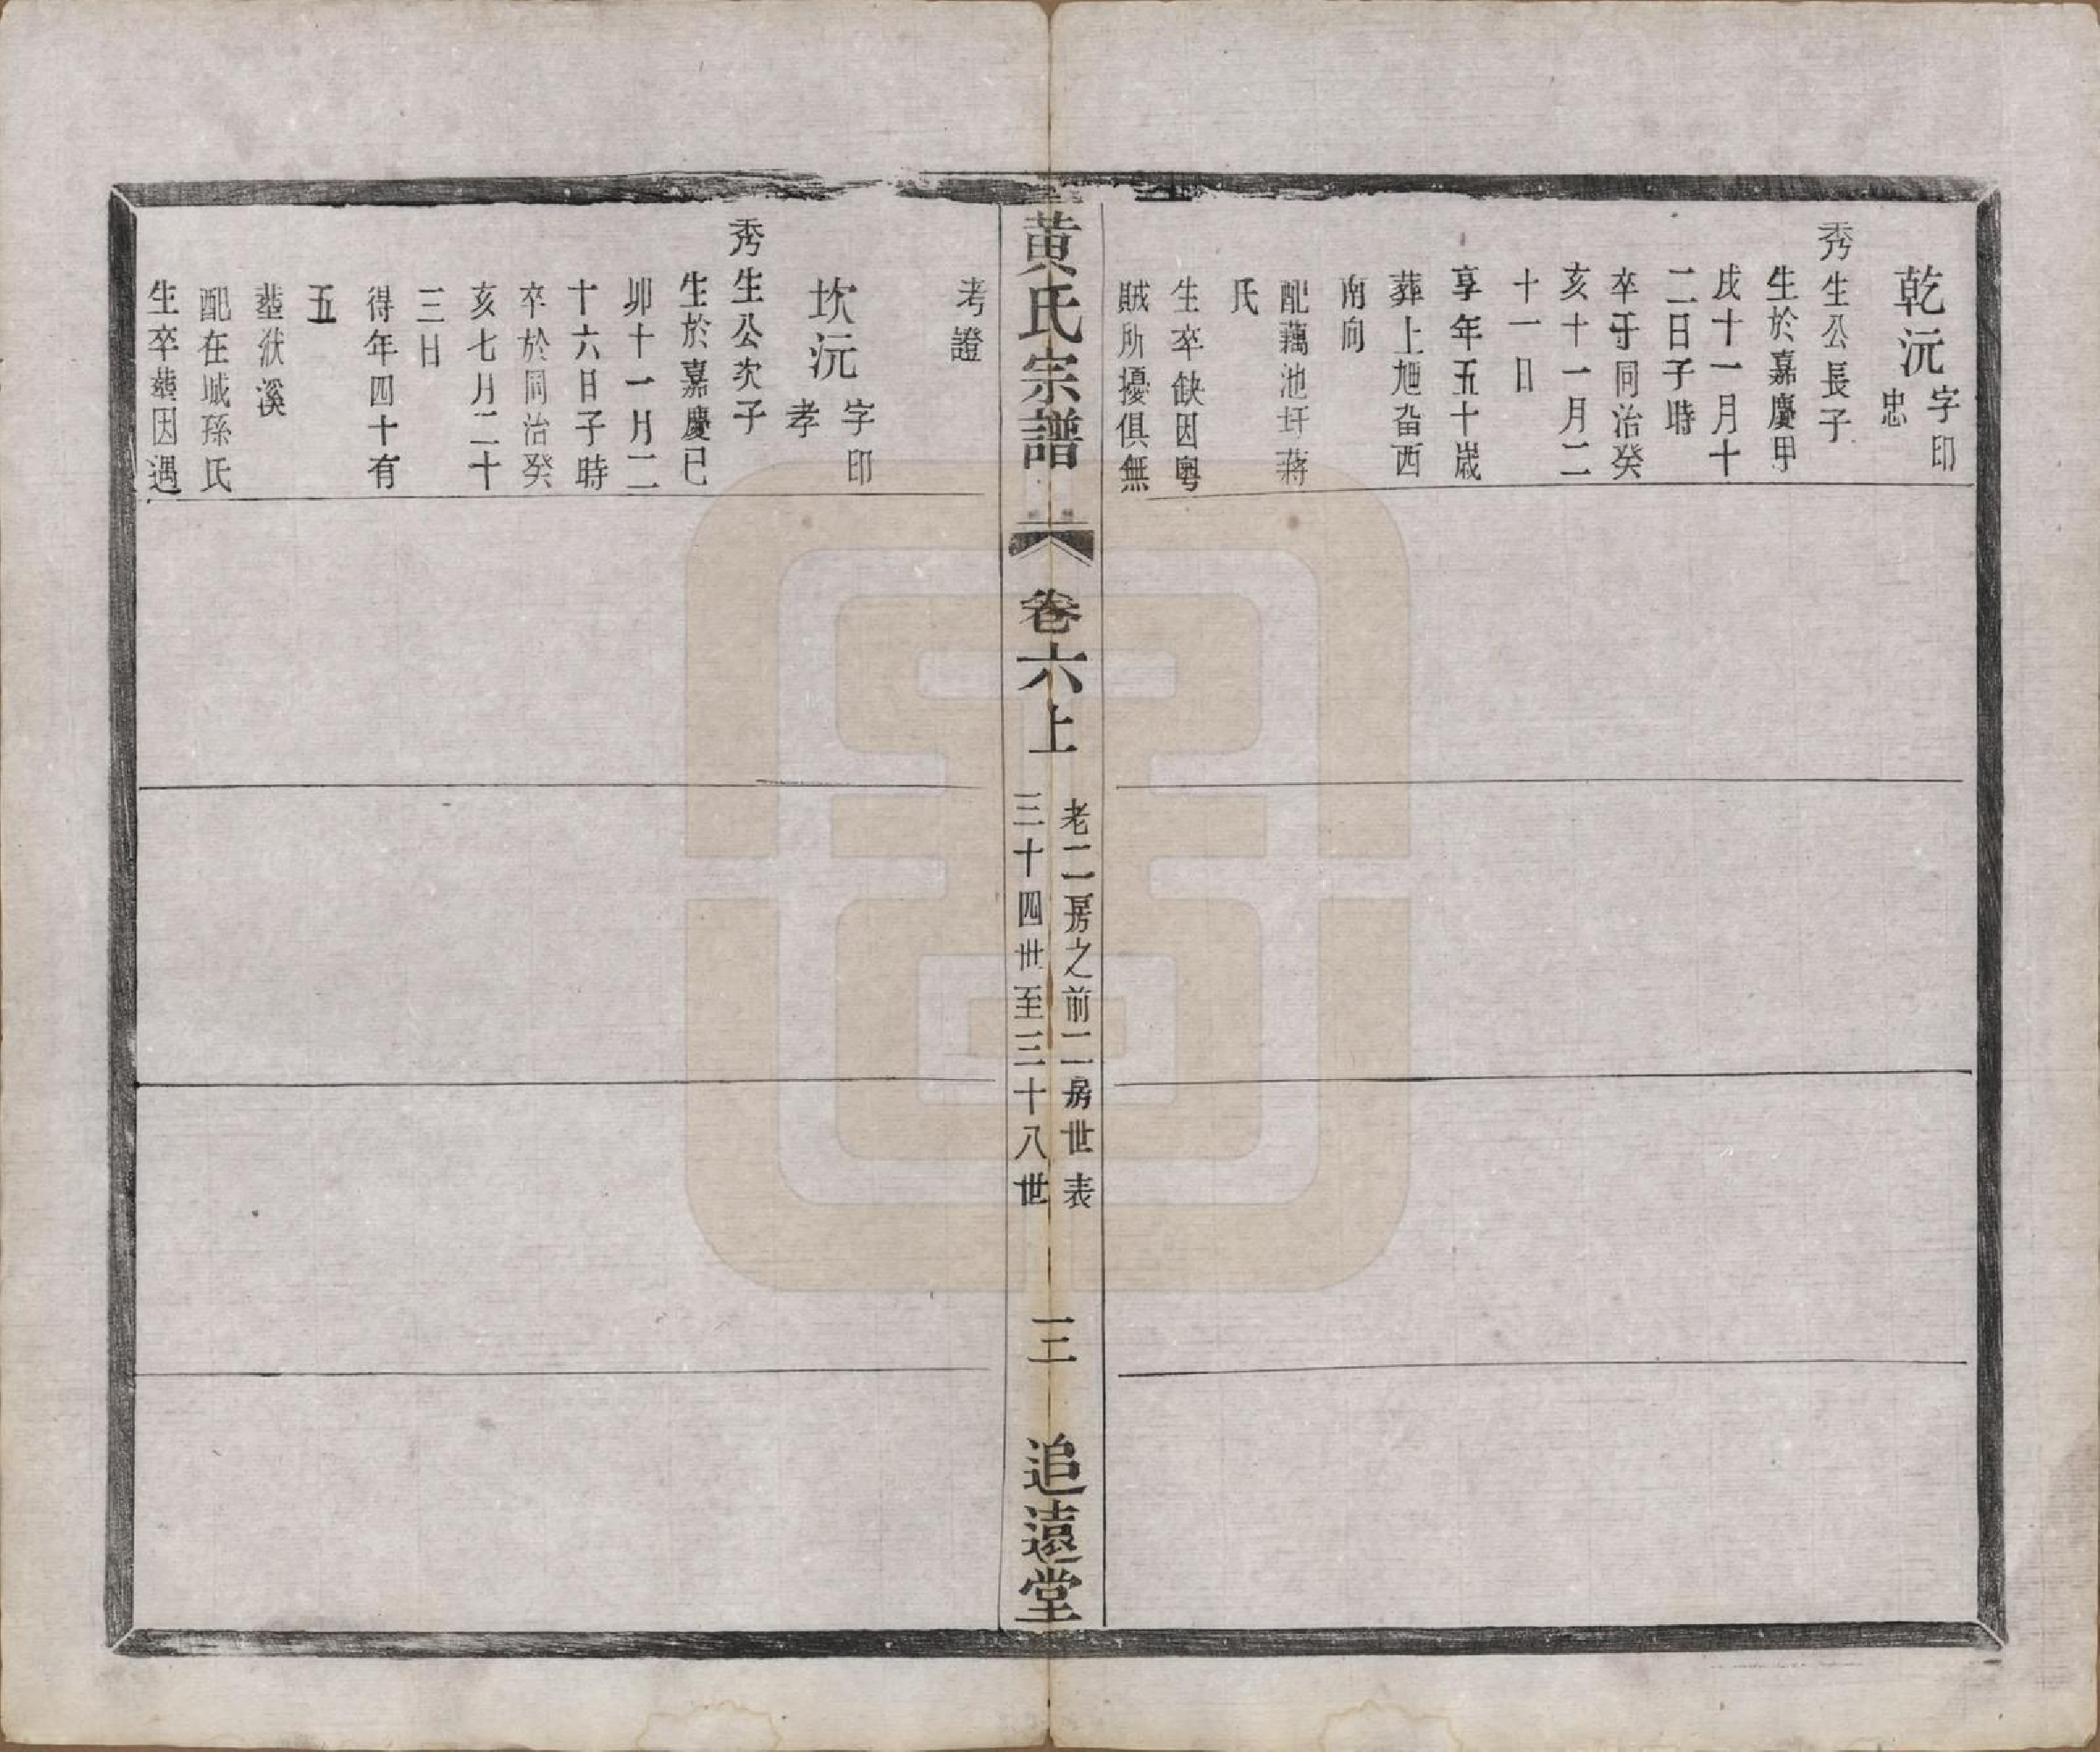 乾沅字印忠
秀生公長子
生於嘉慶甲
戌十一月十
二日子時
卒于同治癸
亥十一月二
十一日
享年五十歲
葬上旭畓西
南向
配藕池圩蔣
氏
生卒缺因粵
賊所擾俱無
黃氏宗譜
卷六上
老二房之前二房世表
三十四世至三十八世
三
追遠堂
考證
坎沅字印孝
秀生公次子
生於嘉慶己
卯十一月二
十六日子時
卒於同治癸
亥七月二十
三日
得年四十有
五
塟洑溪
配在城孫氏
生卒塟因遇